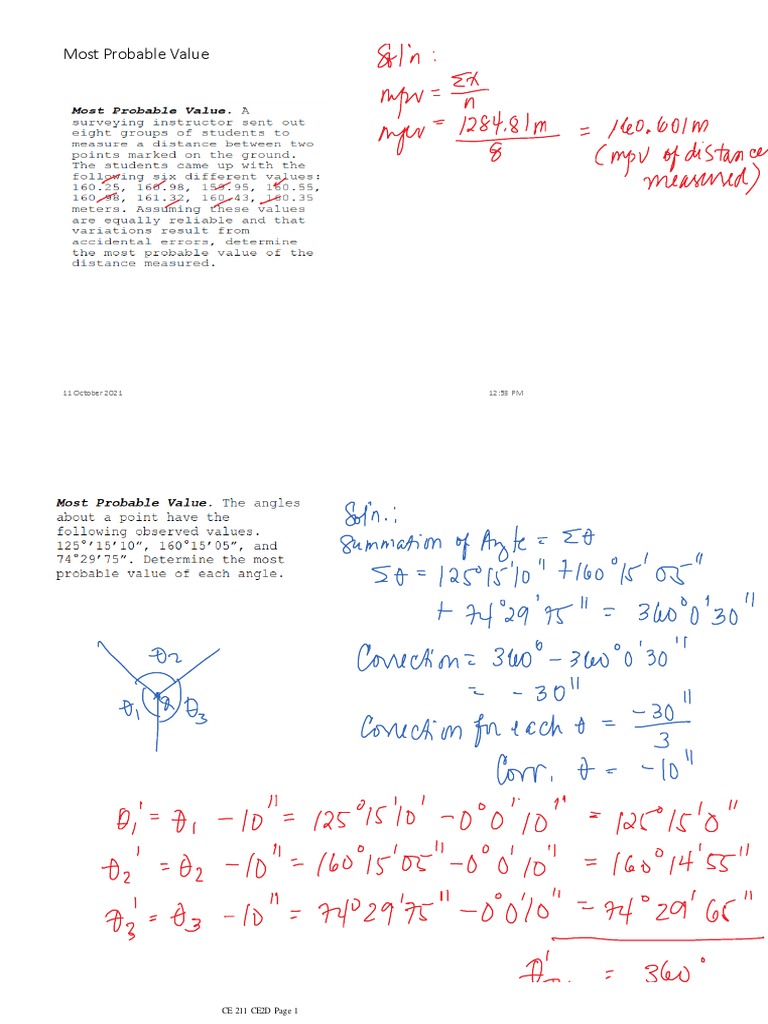 Most Probable Value
Most Probable Value. A
surveying instructor sent out
eight groups of students to
measure a distance between two
points marked on the ground.
The students came up with the
following six different values:
160.25, 160.98, 159.95, 160.55,
160.98, 161.32, 160.43, 160.35
meters. Assuming these values
are equally reliable and that
variations result from
accidental errors, determine
the most probable value of the
distance measured.
Sol'n :
mpv = Σx / n
mpv = 1284.81m / 8 = 160.601m
(mpv of distance
measured)
11 October 2021 12:53 PM
Most Probable Value. The angles
about a point have the
following observed values.
125°'15'10", 160°15'05", and
74°29'75". Determine the most
probable value of each angle.
θ2
θ1
θ3
Sol'n.:
Summation of Angle = Σθ
Σθ = 125°15'10" + 160°15'05"
+ 74°29'75" = 360°0'30"
Correction = 360° - 360°0'30"
= -30"
Correction for each θ = -30" / 3
Corr. θ = -10"
θ1' = θ1 - 10" = 125°15'10' - 0°0'10" = 125°15'0"
θ2' = θ2 - 10" = 160°15'05" - 0°0'10" = 160°14'55"
θ3' = θ3 - 10" = 74°29'75" - 0°0'10" = 74°29'65"
= 360°
CE 211 CE2D Page 1